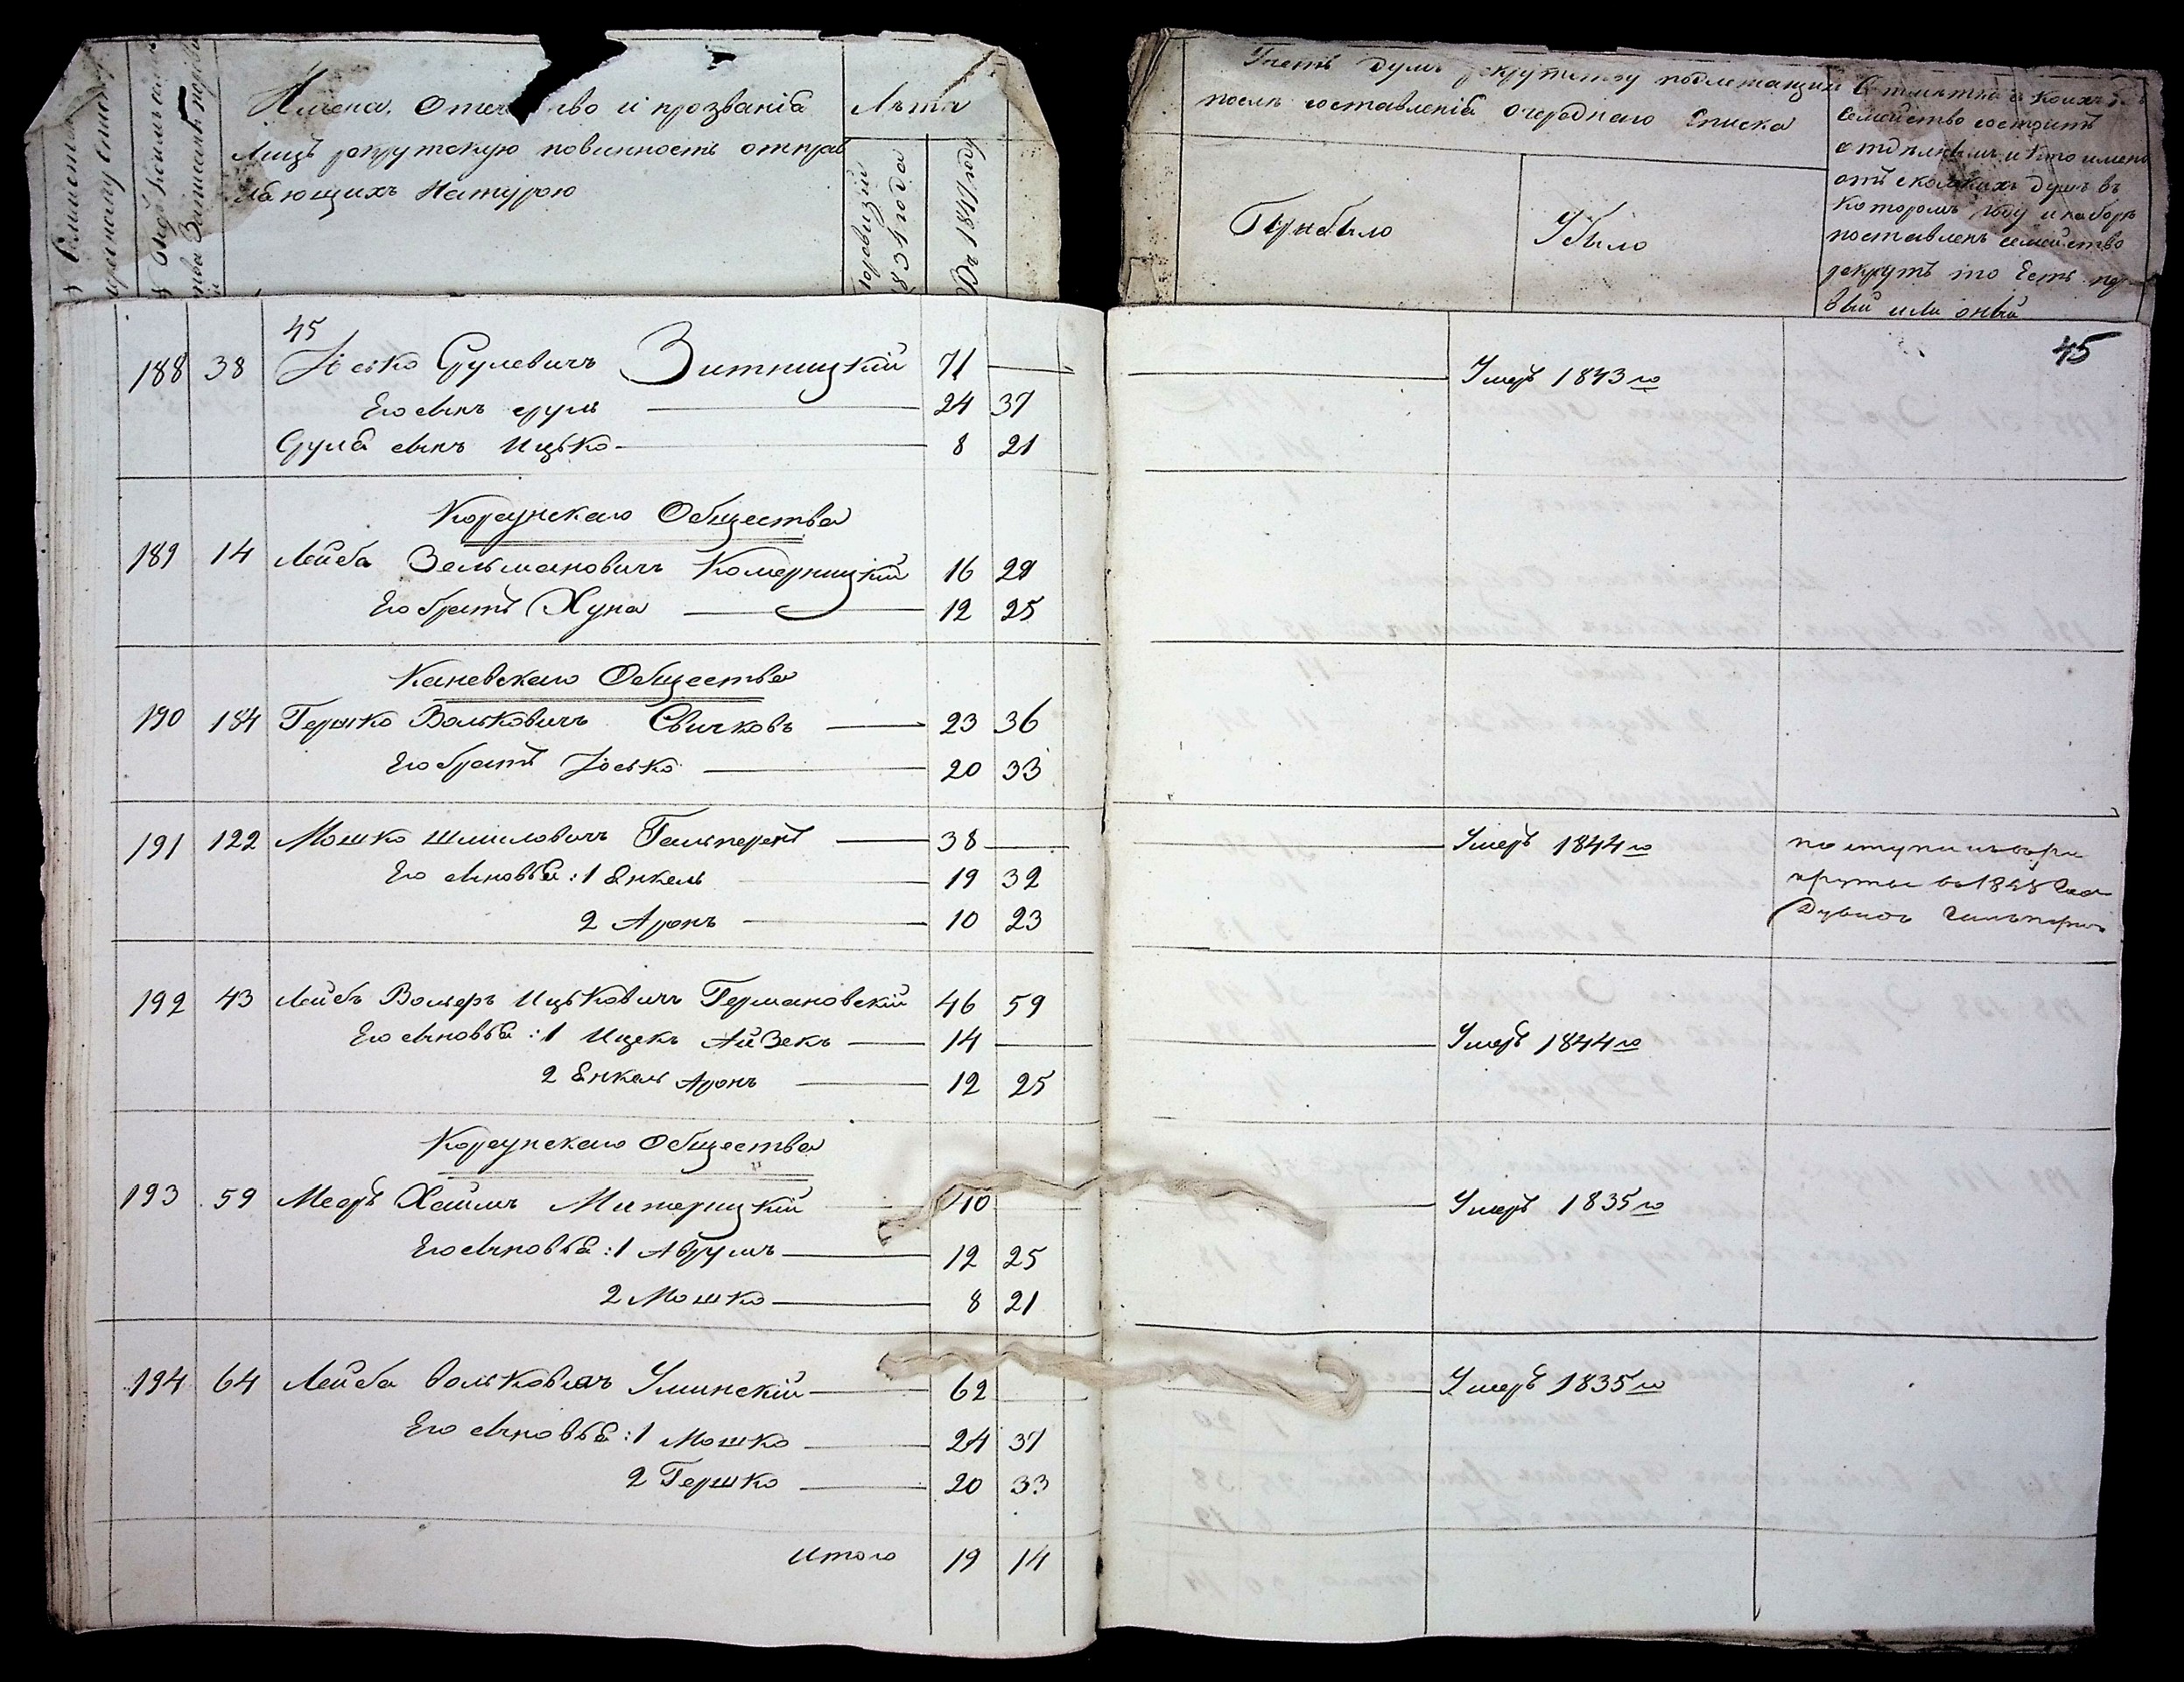 Имена, Отечество и прозванія
Лицъ рекрутскую повинность отправ
ляющихъ Натурою
Лѣта
По ревизіи
1834 года
Счетъ душъ рекрутству подлежащихъ
послѣ составленія очереднаго Списка
Прибыло
Убыло
Отмѣтка в коихъ
Семейство состоитъ
отдѣльныхъ и кто имено
отъ сколькихъ душъ въ
которомъ году и наборѣ
поставленъ семейство
рекрутъ то Есть пер
вый или оный
45
45
188 38 Іосько Срулевичъ Зитницкій 71 — Умеръ 1843го
Его сынъ Сруль 24 37
Сруля сынъ Ицько 8 21
Корсунскаго Общества
189 14 Лейба Зельмановичъ Комерницкій 16 29
Его братъ Хуна 12 25
Каневскаго Общества
190 184 Гершко Вольковичъ Свичковъ 23 36
Его братъ Іосько 20 33
191 122 Мошко Шмиловичъ Гальперенъ 38 — Умеръ 1844го
Его сыновья: 1 Енкель 19 32
2 Аронъ 10 23
192 43 Лейбъ Вольфъ Ицьковичъ Германовскій 46 59
Его сыновья: 1 Ицекъ Айзекъ 14 — Умеръ 1844го
2 Енкель Аронъ 12 25
Корсунскаго Общества
193 59 Мееръ Хаимъ Митерицкій 40 Умеръ 1835го
Его сыновья: 1 Аврумъ 12 25
2 Мошко 8 21
194 64 Лейба Вольковичъ Уминскій 62 Умеръ 1835го
Его сыновья: 1 Мошко 24 37
2 Гершко 20 33
Итого 19 14